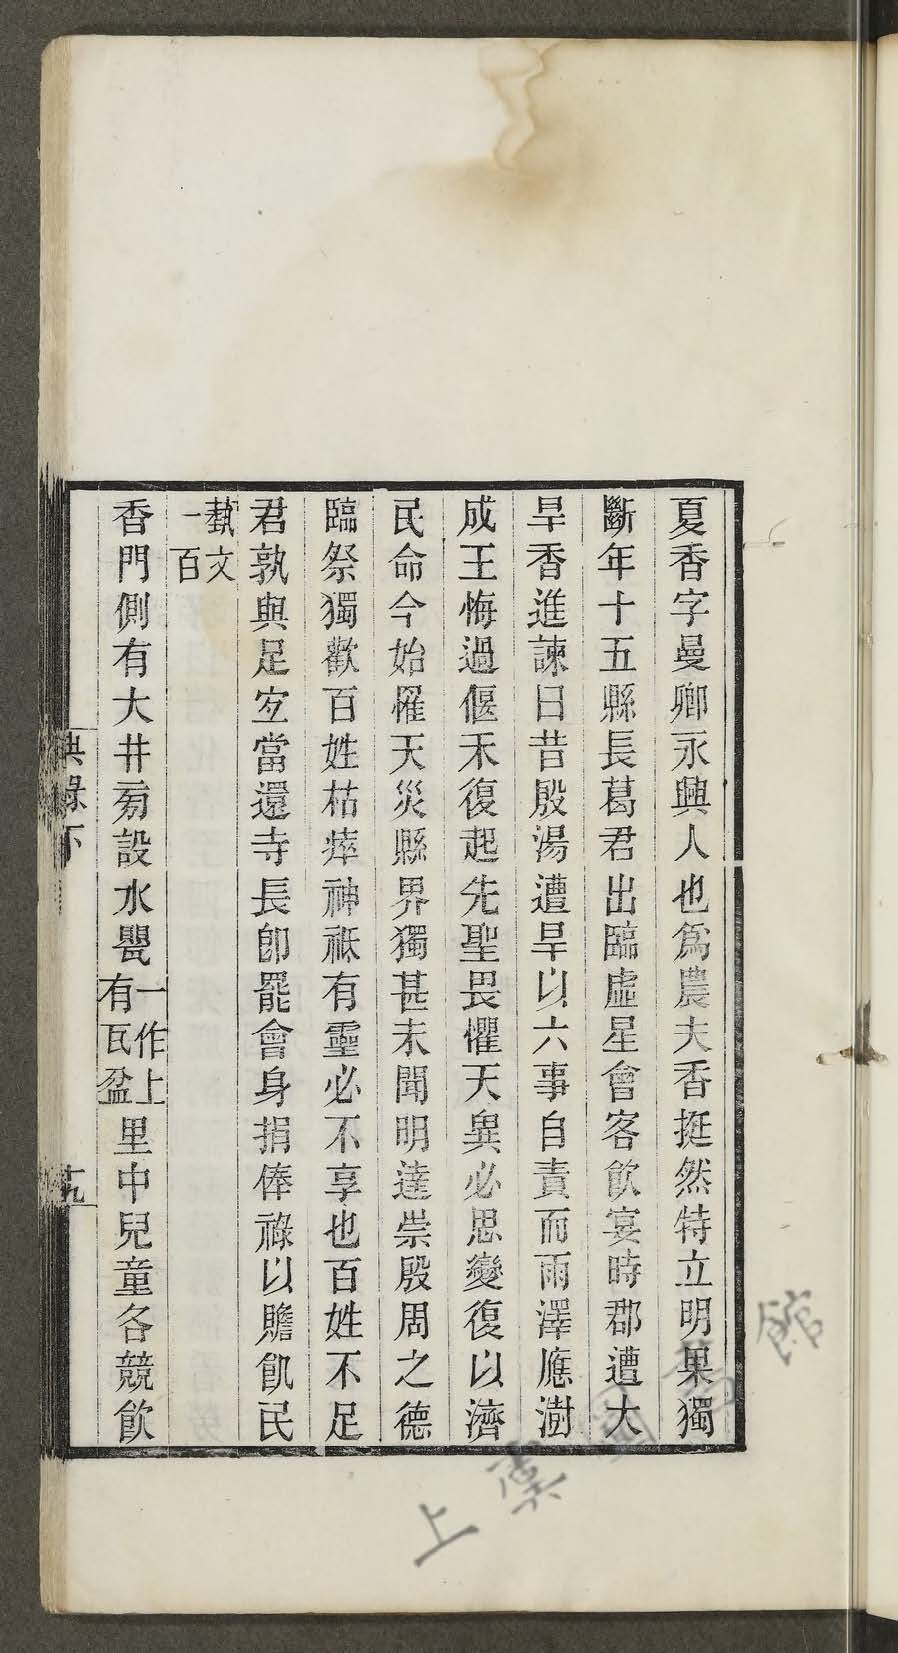 夏香字曼卿永興人也爲農夫香挺然特立明果獨
斷年十五縣長葛君出臨虛星會客飮宴時郡遭大
旱香進諫曰昔殷湯遭旱以六事自責而雨澤應澍
成王悔過偃禾復起先聖畏懼天異必思變復以濟
民命今始罹天災縣界獨甚未聞明達崇殷周之德
臨祭獨歡百姓枯瘁神祗有靈必不享也百姓不足
君孰與足宐當還寺長卽罷會身捐俸祿以贍飢民
藝文
一百
香門側有大井㫄設水甖一作上有瓦盆里中兒童各競飮
典錄下
十九
上虞圖書館